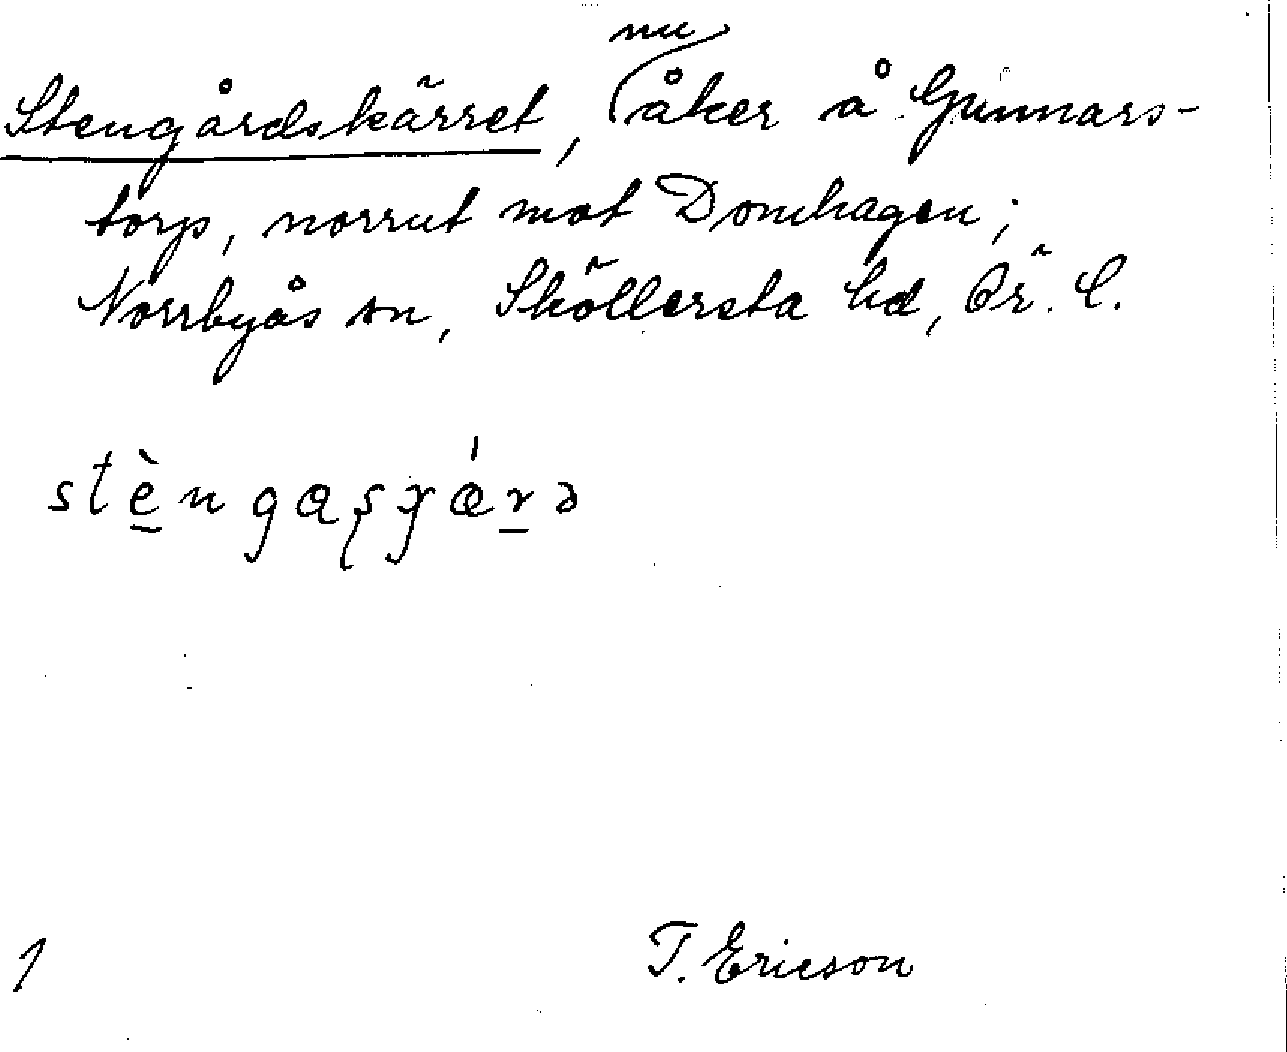 nu
Stengårdskärret, åker å Gunnars-
torp, norrut mot Domhagen;
Norrbyås sn, Sköllersta hd, Ör. l.
1
T. Ericson